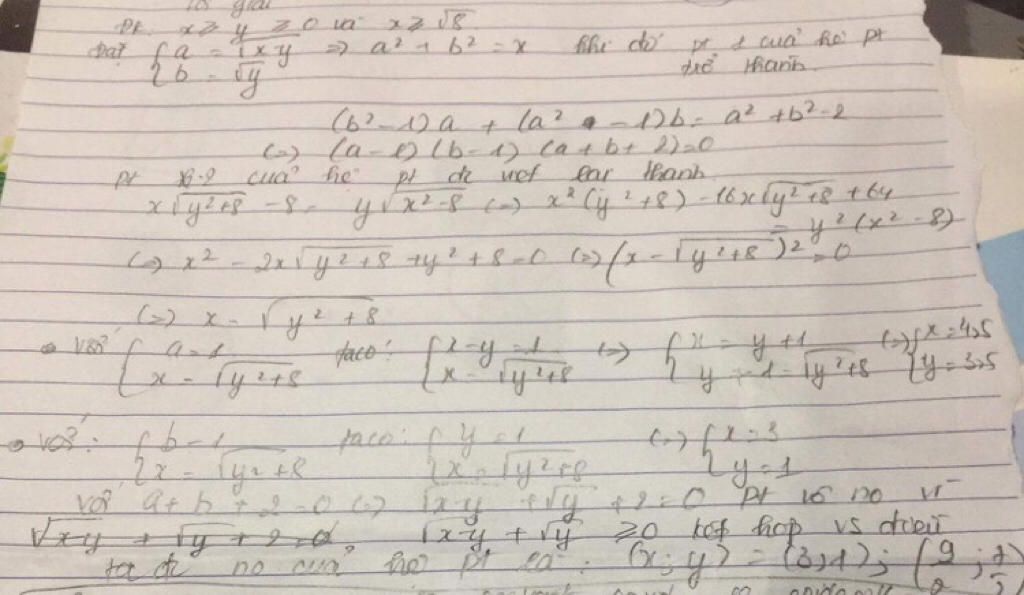 lời giải
Đk: x ≥ y ≥ 0 và x ≥ √8
Đặt { a = √x-y ⇒ a² + b² = x khi đó pt 1 của hệ pt
{ b = √y trở thành
(b² - 1)a + (a² - 1)b = a² + b² - 2
(=) (a - 1) (b - 1) (a + b + 2) = 0
pt 2 của hệ pt đc viết lại thành
x√y²+8 - 8 = y√x²-8 (=) x²(y²+8) - 16x√y²+8 + 64
= y²(x² - 8)
(=) x² - 2x√y²+8 + y² + 8 = 0 (=) (x - √y²+8)² = 0
(=) x = √y²+8
• với { a = 1 ta có: { x - y = 1 (=) { x = y + 1 (=) { x = 4,5
{ x = √y²+8 { x = √y²+8 { y + 1 = √y²+8 { y = 3,5
• với: { b = 1 ta có: { y = 1 (=) { x = 3
{ x = √y²+8 { x = √y²+8 { y = 1
với a + b + 2 = 0 (=) √x-y + √y + 2 = 0 pt vô no vì
√x-y + √y + 2 = 0 √x-y + √y ≥ 0 kết hợp vs đk
ta đc no của hệ pt là: (x; y) = (3, 1); (9/2; 7/2)